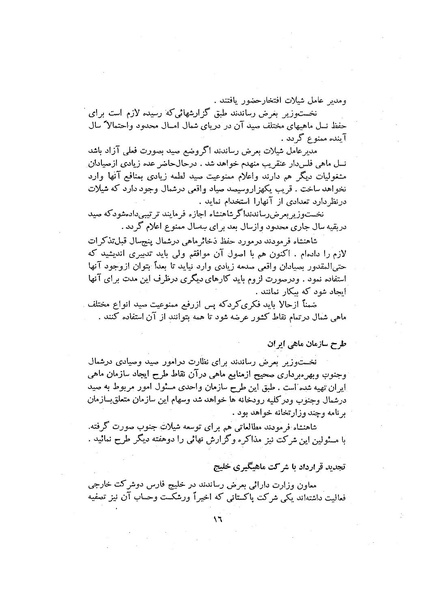 ومدیر عامل شیلات افتخارحضور یافتند .
نخست‌وزیر بعرض رساندند طبق گزارشهائی‌که رسیده لازم است برای
حفظ نسل ماهیهای مختلف صید آن در دریای شمال امسال محدود واحتمالا ً سال
آینده ممنوع گردد .
مدیرعامل شیلات بعرض رساندند اگروضع صید بصورت فعلی آزاد باشد
نسل ماهی فلس‌دار عنقریب منهدم خواهد شد . درحال‌حاضر عده زیادی ازصیادان
مشغولیات دیگر هم دارند واعلام ممنوعیت صید لطمه زیادی بمنافع آنها وارد
نخواهد ساخت . قریب یکهزاروسیصد صیاد واقعی درشمال وجود دارد که شیلات
درنظردارد تعدادی از آنهارا استخدام نماید .
نخست‌وزیربعرض‌رساندنداگرشاهنشاه اجازه فرمایند ترتیبی‌داده‌شودکه صید
دربقیه سال جاری محدود وازسال بعد برای سه‌سال ممنوع اعلام گردد .
شاهنشاه فرمودند درمورد حفظ ذخائرماهی درشمال پنج‌سال قبل‌تذکرات
لازم را داده‌ام . اکنون هم با اصول آن موافقم ولی باید تدبیری اندیشید که
حتی‌المقدور بصیادان واقعی صدمه زیادی وارد نیاید تا بعداً بتوان ازوجود آنها
استفاده نمود . ودرصورت لزوم باید کارهای‌دیگری درظرف این مدت برای آنها
ایجاد شود که بیکار نمانند .
ضمناً ازحالا باید فکری‌کردکه پس ازرفع ممنوعیت صید انواع مختلف
ماهی شمال درتمام نقاط کشور عرضه شود تا همه بتوانند از آن استفاده کنند .
طرح سازمان ماهی ایران
نخست‌وزیر بعرض رساندند برای نظارت درامور صید وصیادی درشمال
وجنوب وبهره‌برداری صحیح ازمنابع ماهی درآن نقاط طرح ایجاد سازمان ماهی
ایران تهیه شده است . طبق این طرح سازمان واحدی مسئول امور مربوط به صید
درشمال وجنوب ودرکلیه رودخانه ها خواهد شد وسهام این سازمان متعلق‌بسازمان
برنامه وچند وزارتخانه خواهد بود .
شاهنشاه فرمودند مطالعاتی هم برای توسعه شیلات جنوب صورت گرفته.
با مسئولین این شرکت نیز مذاکره وگزارش نهائی را دوهفته دیگر طرح نمائید .
تجدید قرارداد با شرکت ماهیگیری خلیج
معاون وزارت دارائی بعرض رساندند در خلیج فارس دوشرکت خارجی
فعالیت داشته‌اند یکی شرکت پاکستانی که اخیراً ورشکست وحساب آن نیز تصفیه
۱۶